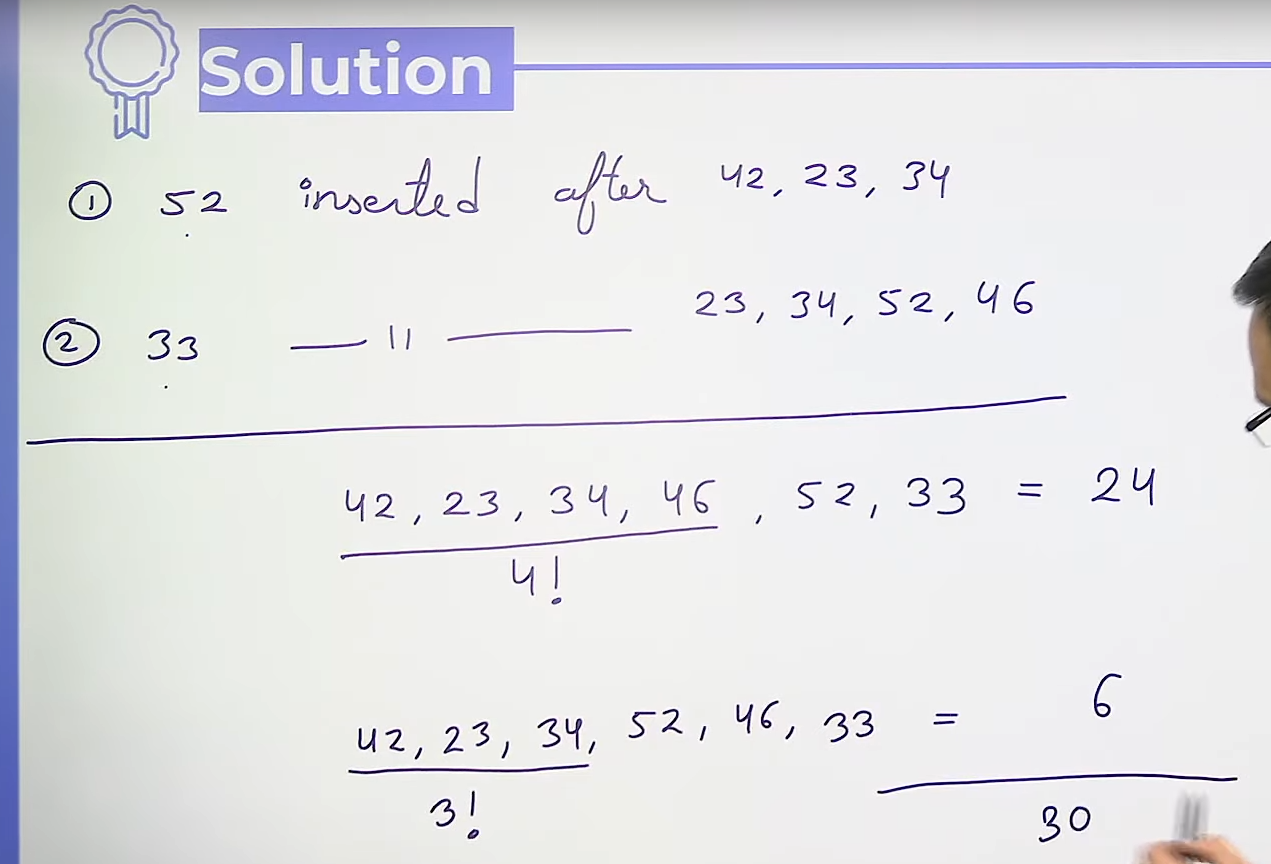 Solution
① 52 inserted after 42, 23, 34
② 33 —— 11 —— 23, 34, 52, 46
42, 23, 34, 46, 52, 33 = 24
4!
42, 23, 34, 52, 46, 33 = 6
3!
30